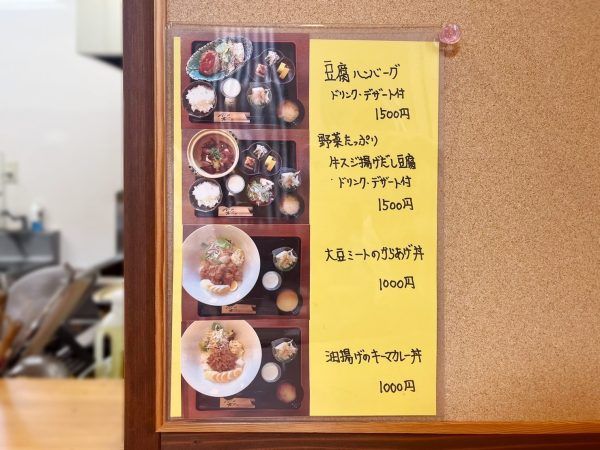 豆腐ハンバーグ
ドリンク・デザート付
1500円
野菜たっぷり
牛スジ揚げだし豆腐
ドリンク・デザート付
1500円
大豆ミートのからあげ丼
1000円
油揚げのキーマカレー丼
1000円